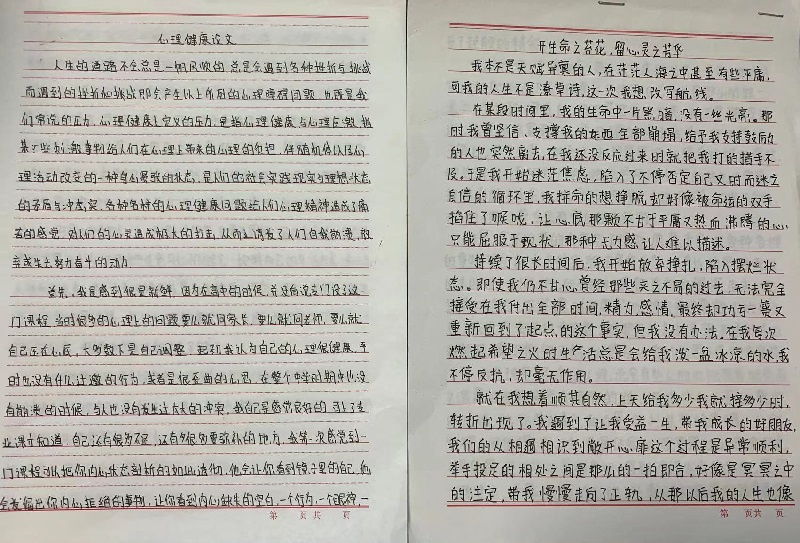 心理健康论文
人生的道路不会总是一帆风顺的总是会遇到各种挫折与挑战
而遇到的挫折和挑战即会产生以上所有的心理障碍问题
们常说的压力。心理健康上定义的压力
理活动改变的一种身心紧张的状态，是人们的社会实践现实与理想状态
的矛盾与冲突，多种多样的心理健康问题给人们心理精神造成了痛
苦的感觉，对人们的心灵造成极大的打击，从而
去努力奋斗的动力。
首先，我是感到很是新鲜，因为在高中的时候，并没有说专门设了这
门课程，当时很多的心理上的问题要么就问家长，要么就问老师，要么就
自己压在心底，大多数下是自己调整。
时也没有什么过激的行为，或者是很歪曲的心思，在整个中学时期中也没
有崩溃的时候，与人也没有发生过太大的冲突，我自己是感觉良好的
业课
门课程可以把你内心状态剖析的如此透彻，他会让你看到镜子里的自己，他
让你看到内心缺失的空白，一个行为，一个眼神，一
第 页 共 页
开生命之苔花，留心灵之芳华
我本不是天赋异禀的人，在茫茫人海之中甚至有些平庸，
可我的人生不是潦草诗，这一次我想改写航线。
在某段时间里，我的生命中一片黑暗，没有一丝光亮。那
时我曾坚信、支撑我的东西全部崩塌，给予我支持鼓励
的人也突然离去，在我还没反应过来时就把我打的措手不
及。于是我开始迷茫焦虑，陷入了不停否定自己又时而迷之
自信的循环里，我拼命的想挣脱却好像被命运的双手
掐住了喉咙，让心底那颗不甘于平庸又热血沸腾的心，
只能屈服于现状，那种无力感让人难以描述。
持续了很长时间后，我开始放弃挣扎，陷入摆烂状
态。即使我仍不甘心，曾经那些关之不易的过去，无法完全
接受在我付出全部时间，精力，感情，最终却功亏一篑又
重新回到了起点的这个事实，但我没有办法。在我每次
燃起希望之火时生活总是会给我泼一盆冰凉的水，我
不停反抗，却毫无作用。
就在我想着顺其自然，上天给我多少我就接多少时，
转折出现了。我遇到了让我受益一生，带我成长的好朋友，
我们的从相遇相识到敞开心扉这个过程是异常顺利，
举手投足的相处之间是那么的一拍即合，好像是冥冥之中
的注定，带我慢慢走向了正轨，从那以后我的人生也像
第 页 共 页